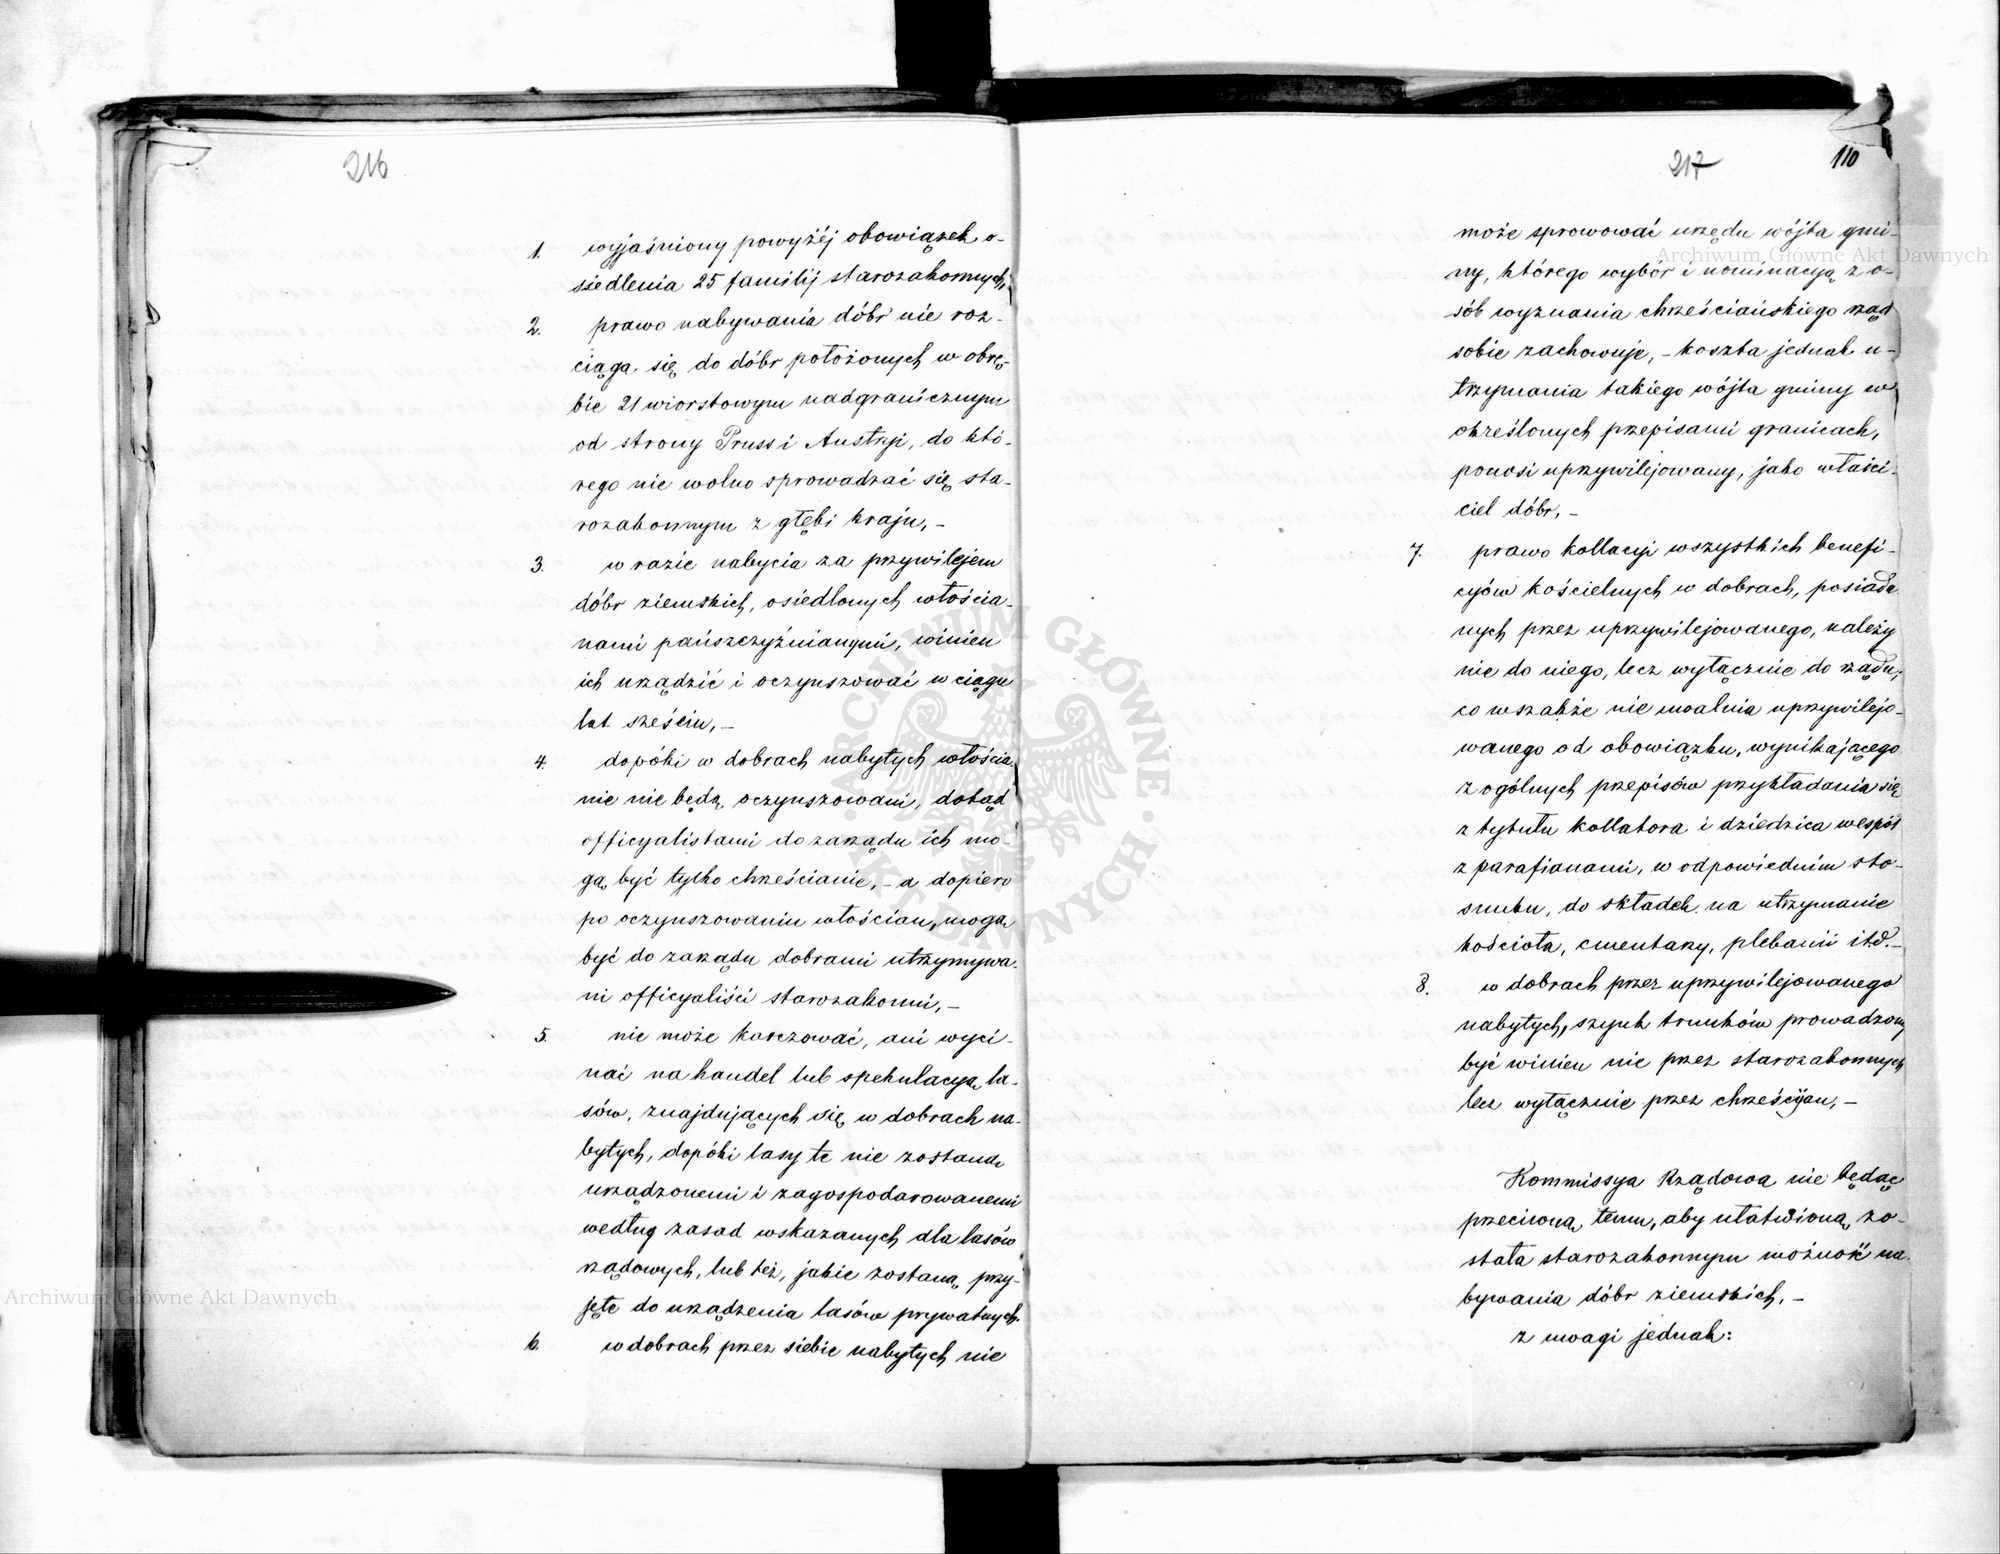 216
1. wyjaśniony powyżéj obowiązek o-
siedlenia 25 familij starozakonnych,
2. prawo nabywania dóbr nie roz-
ciąga się do dóbr położonych w obrę-
bie 21 wiorstowym nadgranicznym
od strony Pruss i Austryi, do któ-
rego nie wolno sprowadzać się sta-
rozakonnym z głębi kraju, –
3. w razie nabycia za przywilejem
dóbr ziemskich, osiedlonych włościa-
nami pańszczyźnianymi, winien
ich urządzić i oczynszować w ciągu
lat sześciu, –
4. dopóki w dobrach nabytych włościa-
nie nie będą oczynszowani, dotąd
officyalistami do zarządu ich mo-
gą być tylko chrześcianie, – a dopiero
po oczynszowaniu włościan, mogą
być do zarządu dobrami utrzymywa-
ni officyaliści starozakonni, –
5. nie może karczować, ani wyci-
nać na handel lub spekulacyą la-
sów, znajdujących się w dobrach na-
bytych, dopóki lasy te nie zostaną
urządzonemi i zagospodarowanemi
według zasad wskazanych dla lasów
rządowych, lub też, jakie zostaną przy-
jęte do urządzenia lasów prywatnych.
6. w dobrach przez siebie nabytych nie
217
110
może sprawować urzędu wójta gmi-
ny, którego wybór i nominacyą z o-
sób wyznania chrześciańskiego rząd
sobie zachowuje, – koszta jednak u-
trzymania takiego wójta gminy w
określonych przepisami granicach,
ponosi uprzywilejowany, jako właści-
ciel dóbr, –
7. prawo kollacyi wszystkich benefi-
cyów kościelnych w dobrach, posiada-
nych przez uprzywilejowanego, należy
nie do niego, lecz wyłącznie do rządu,
co wszakże nie uwalnia uprzywilejo-
wanego od obowiązku, wynikającego
z ogólnych przepisów przykładania się
z tytułu kollatora i dziedzica wespół
z parafianami, w odpowiednim sto-
sunku, do składek na utrzymanie
kościoła, cmentarzy, plebanii itd. –
8. w dobrach przez uprzywilejowanego
nabytych, szynk trunków prowadzony
być winien nie przez starozakonnych
lecz wyłącznie przez chrześcijan, –
Kommissya Rządowa nie będąc
przeciwną temu, aby ułatwioną zo-
stała starozakonnym możność na-
bywania dóbr ziemskich, –
z uwagi jednak:
Archiwum Główne Akt Dawnych
Archiwum Główne Akt Dawnych
ARCHIWUM GŁÓWNE AKT DAWNYCH